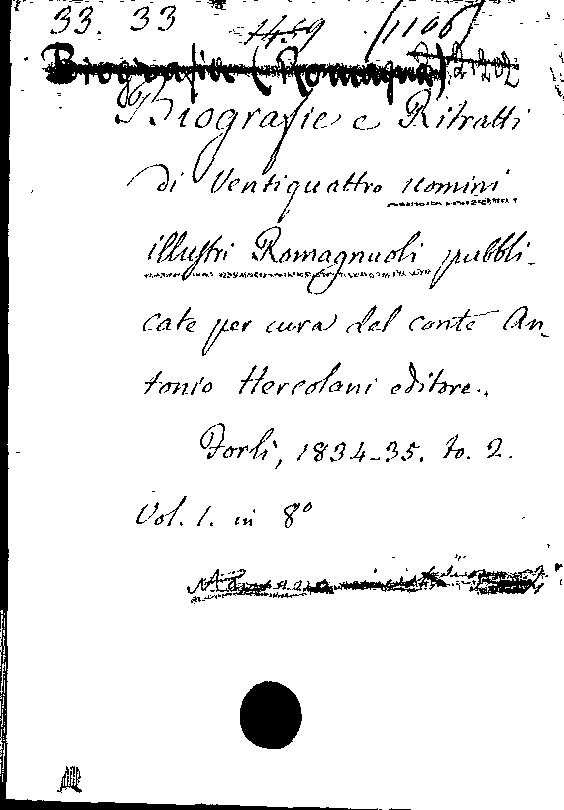 33. 33 1459 (1106)
Biografie (Romagna)
Biografie e Ritratti
di Ventiquattro uomini
illustri Romagnuoli pubbli-
cate per cura del conte An-
tonio Hercolani editore.
Forlì, 1834-35. to. 2.
Vol. 1. in 8º